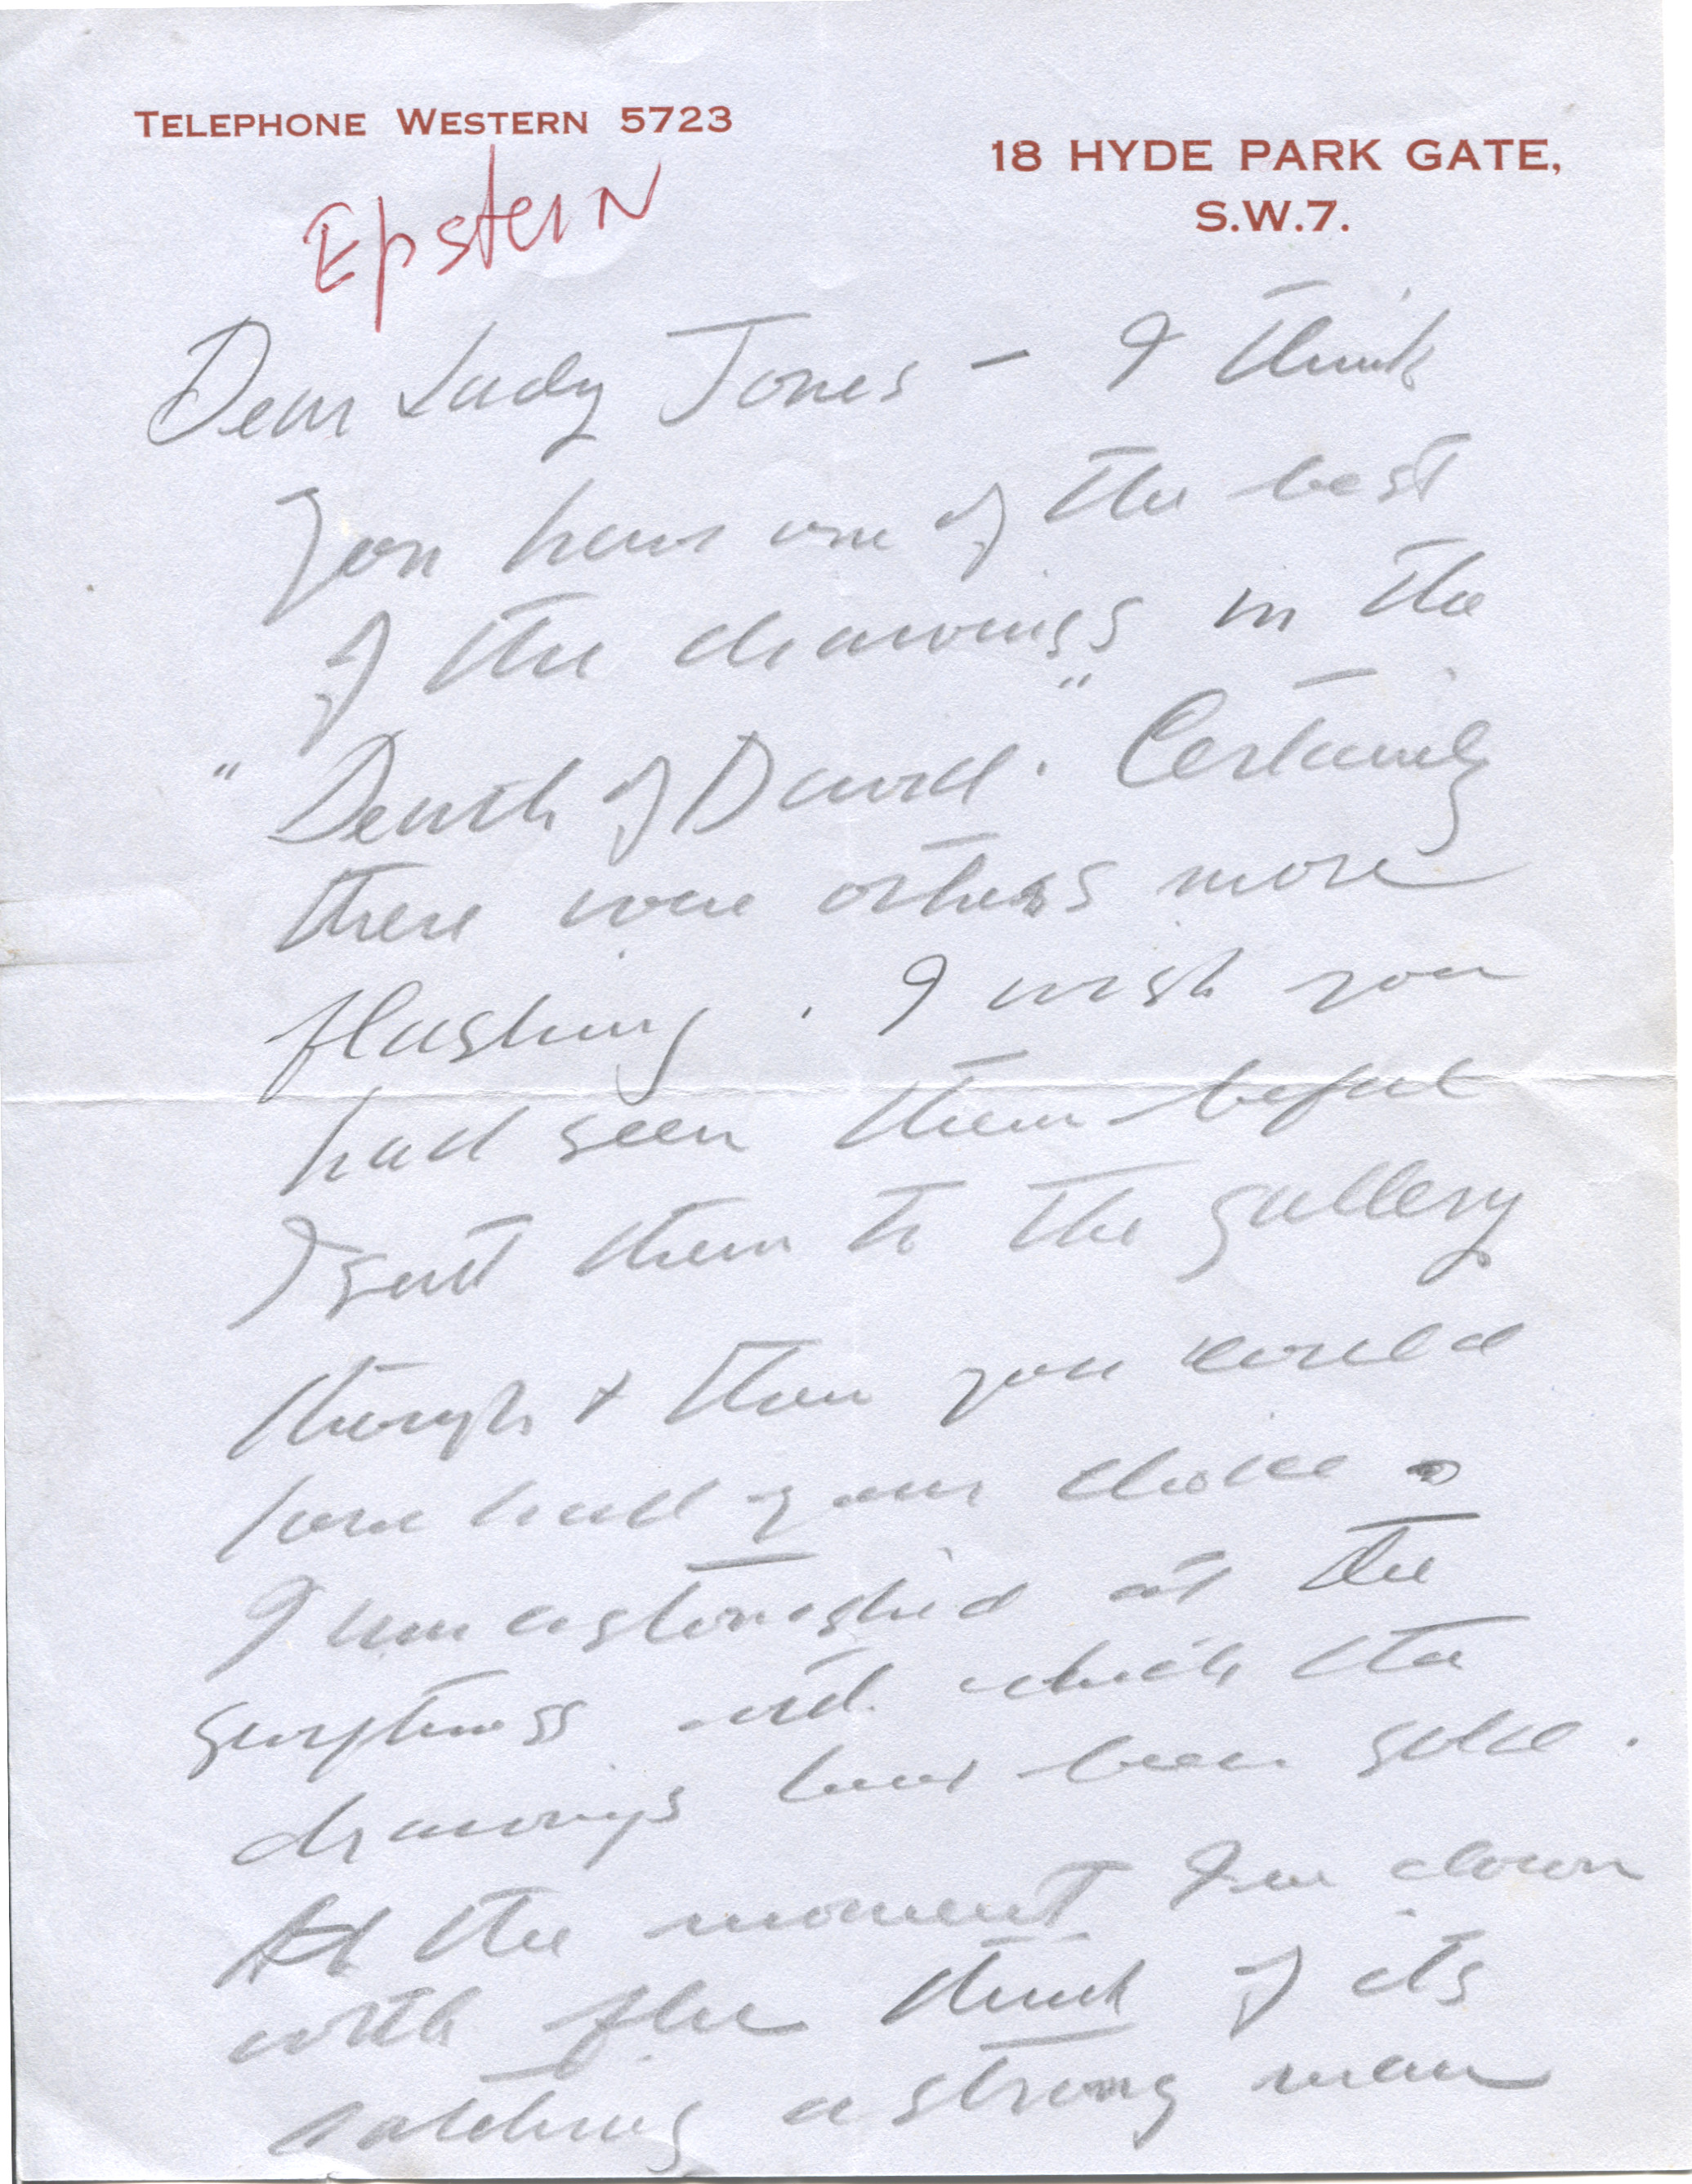 TELEPHONE WESTERN 5723
18 HYDE PARK GATE,
S.W.7.
Epstein
Dear Lady Jones - I think
you have one of the best
of the drawings in the
"Death of David." Certainly
there were others more
flashing. I wish you
had seen them before
I sent them to the gallery
though & then you could
have had your choice.
I am astonished at the
with which the
drawings have been sold.
At the moment I'm down
with flu think of its
catching a strong man